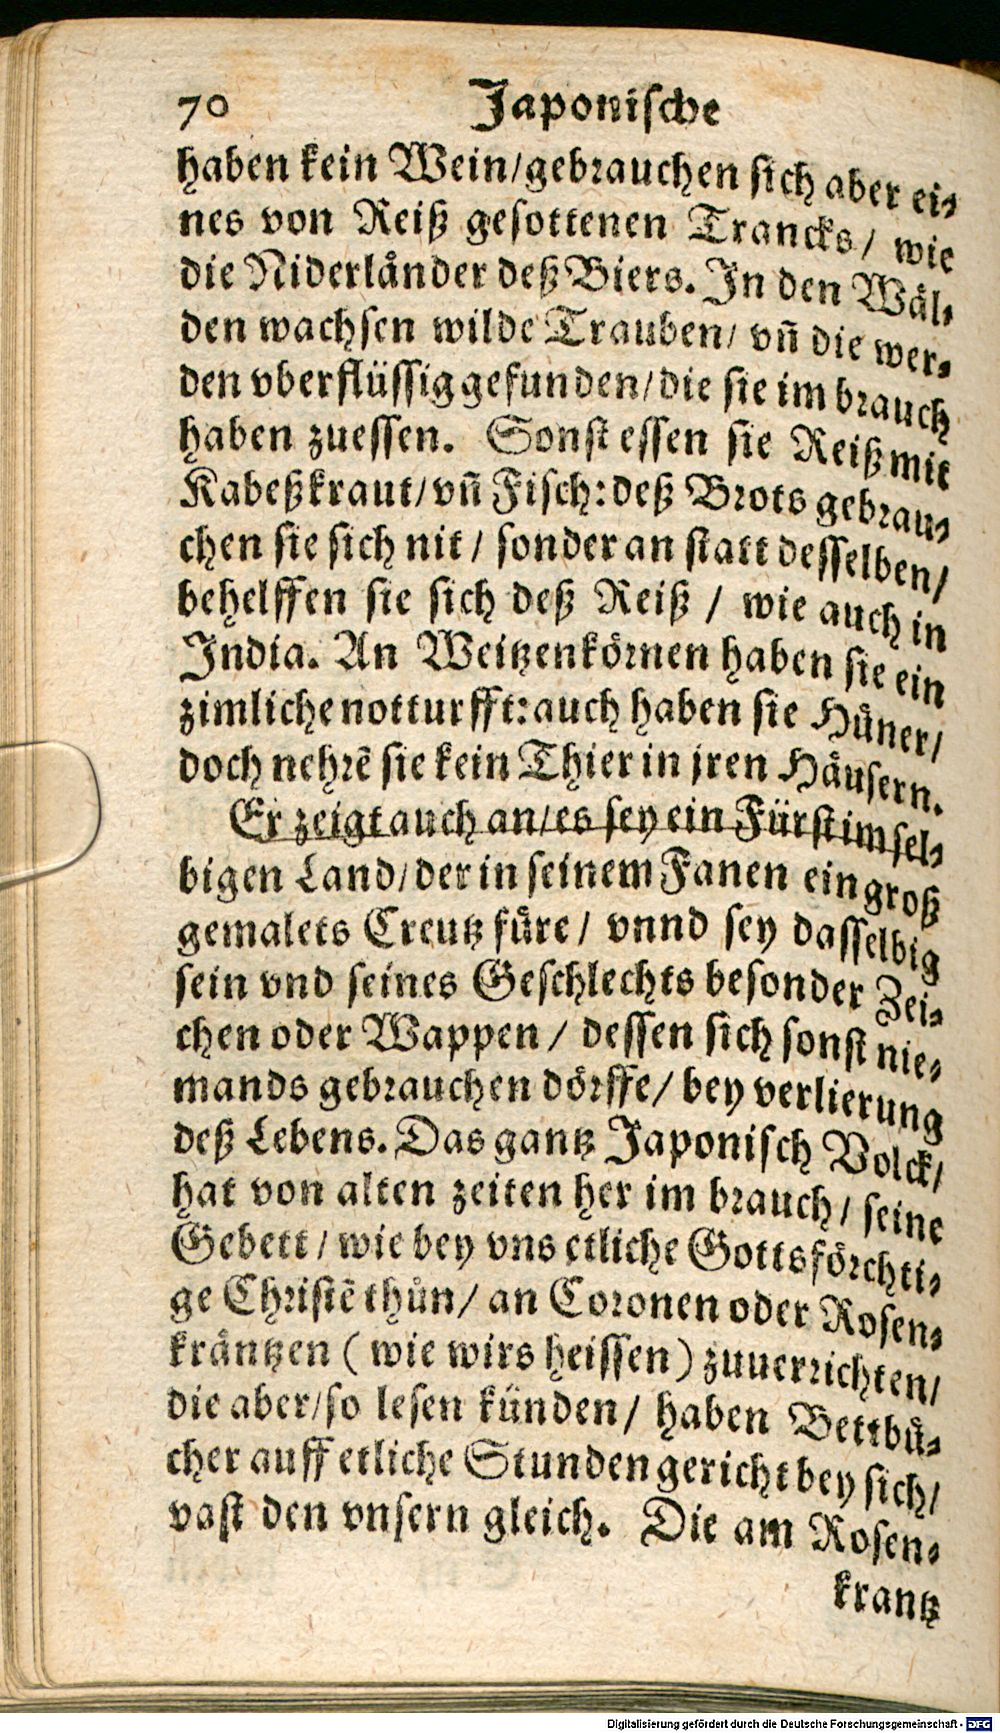 70 Japonische
haben kein Wein/gebrauchen sich aber ei⸗
nes von Reiß gesottenen Trancks/ wie
die Niderlånder deß Biers. In den Wäl⸗
den wachsen wilde Trauben/ vñ die wer⸗
den vberflüssig gefunden/die sie im brauch
haben zuessen. Sonst essen sie Reiß mit
Kabeßkraut/vñ Fisch: deß Brots gebrau⸗
chen sie sich nit / sonder an statt desselben/
behelffen sie sich deß Reiß / wie auch in
India. An Weitzenkörnen haben sie ein
zimliche notturfft: auch haben sie Hůner/
doch nehrẽ sie kein Thier in jren Håusern.
Er zeigt auch an/es sey ein Fürst im sel⸗
bigen Land/der in seinem Fanen ein groß
gemalets Creutz fůre / vnnd sey dasselbig
sein vnd seines Geschlechts besonder Zei⸗
chen oder Wappen / dessen sich sonst nie⸗
mands gebrauchen dörffe/ bey verlierung
deß Lebens. Das gantz Japonisch Volck/
hat von alten zeiten her im brauch / seine
Gebett / wie bey vns etliche Gottsförchti⸗
ge Christẽ thůn/ an Coronen oder Rosen⸗
kråntzen ( wie wirs heissen ) zuuerrichten/
die aber/so lesen künden/ haben Bettbů⸗
cher auff etliche Stunden gericht bey sich/
vast den vnsern gleich. Die am Rosen⸗
krantz
Digitalisierung gefördert durch die Deutsche Forschungsgemeinschaft - DFG